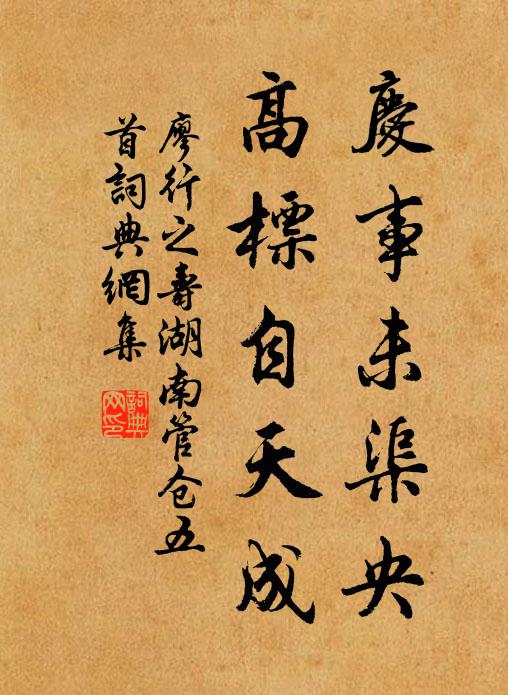 慶事未渠央
高標自天成
廖行之壽湖南管仓五
首詞典網集
詞典
网印